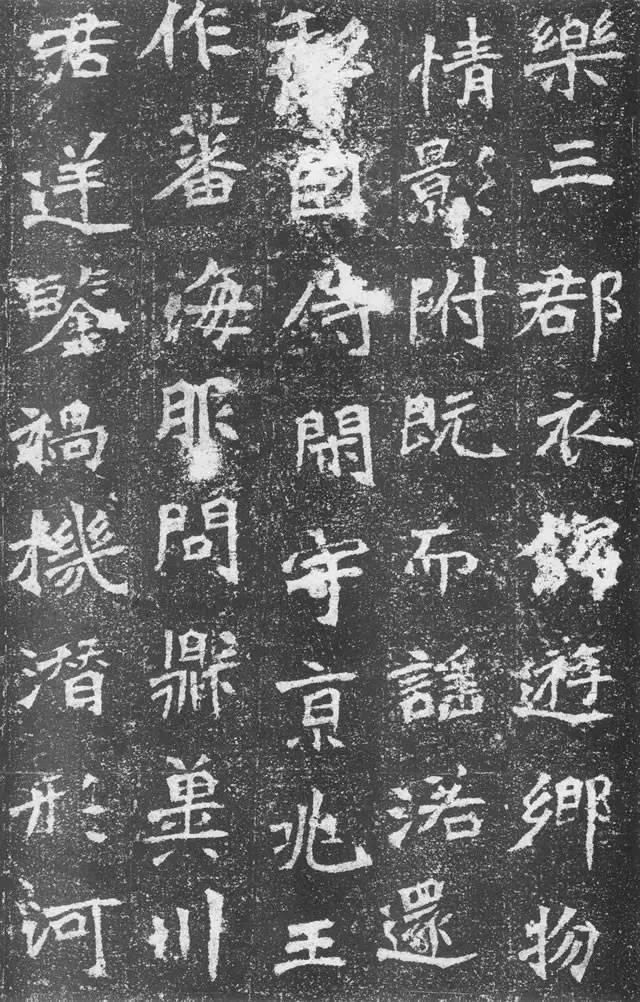 樂三郡衣錦遊鄉物
情影附既而謠渚還
侍閑守京兆王
作蕃海服問鼎冀川
君逆鑒禍機潛形河